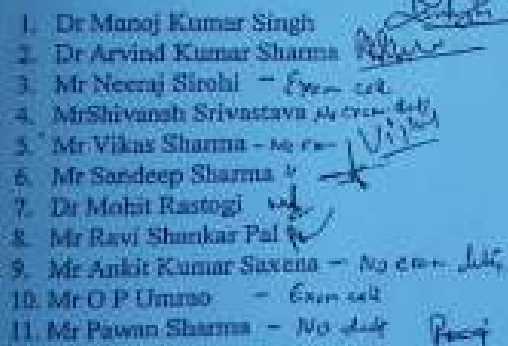 1. Dr Manoj Kumar Singh
2. Dr Arvind Kumar Sharma
3. Mr Neeraj Sirohi - Exam cell
4. MrShivansh Srivastava No exam duty
5. Mr Vikas Sharma - No
6. Mr Sandeep Sharma
7. Dr Mohit Rastogi
8. Mr Ravi Shankar Pal
9. Mr Ankit Kumar Saxena - No exam duty
10. Mr O P Ummao - Exam cell
11. Mr Pawan Sharma - No duty